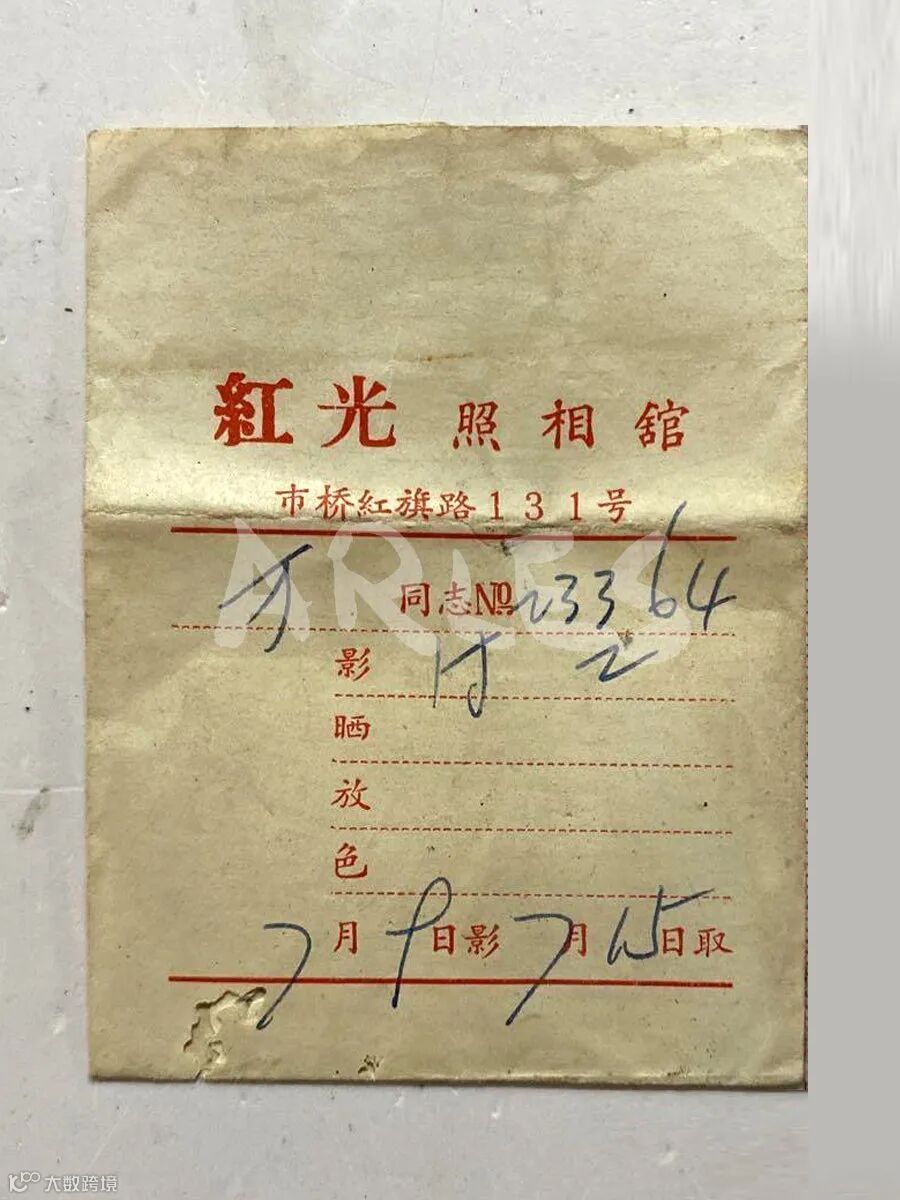 紅光 照相舘
市桥紅旗路131号
方 同志 №23364
影 1寸 2
晒
放
色
7月9日影 7月15日取
ARLES
大数跨境